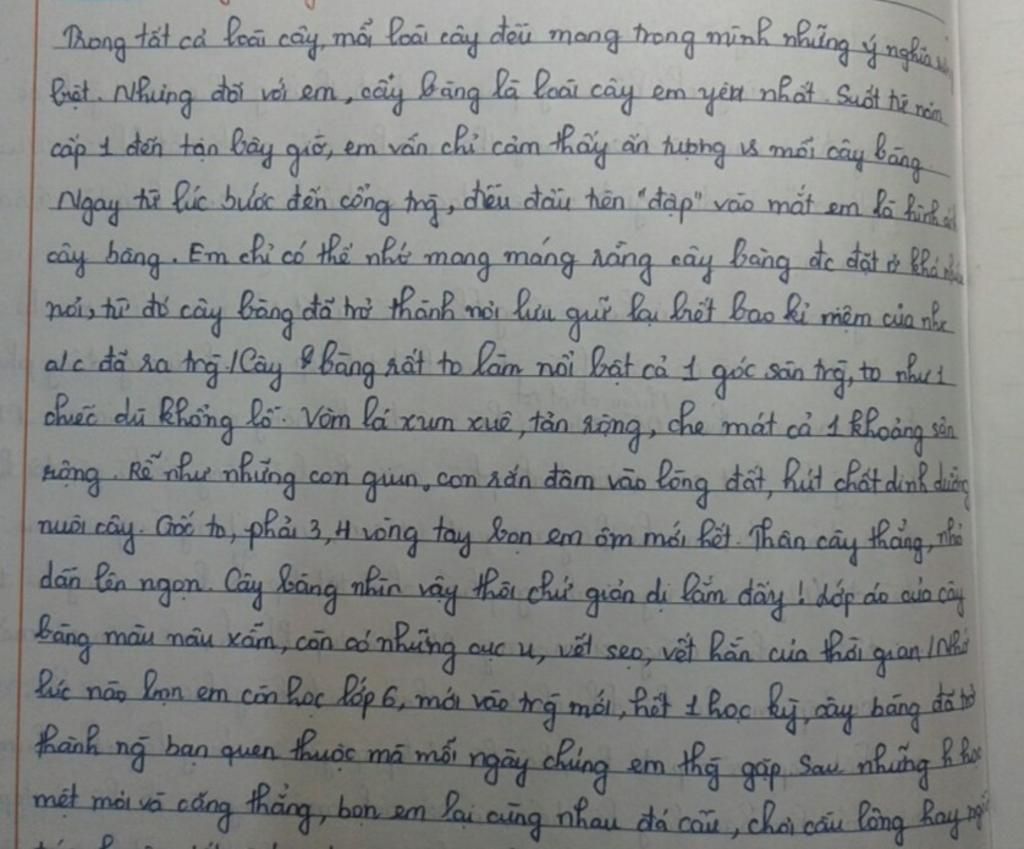 Trong tất cả loài cây, mỗi loài cây đều mang trong mình những ý nghĩa
biệt. Nhưng đối với em, cây bàng là loài cây em yêu nhất. Suốt từ năm
cấp 1 đến tận bây giờ, em vẫn chỉ cảm thấy ấn tượng vs mỗi cây bàng
Ngay từ lúc bước đến cổng trg̃, điều đầu tiên "đập" vào mắt em là hình
cây bàng. Em chỉ có thể nhớ mang máng rằng cây bàng đc đặt ở khá
nơi, từ đó cây bàng đã trở thành nơi lưu giữ lại hết bao kỉ niệm của
a/c đã ra trg̃./Cây bàng rất to làm nổi bật cả 1 góc sân trg̃, to như 1
chiếc dù khổng lồ. Vòm lá xum xuê, tán rộng, che mát cả 1 khoảng sân
rộng. Rễ như những con giun, con rắn đâm vào lòng đất, hút chất dinh dưỡng
nuôi cây. Gốc to, phải 3, 4 vòng tay bọn em ôm mới hết. Thân cây thẳng, nhỏ
dần lên ngọn. Cây bàng nhìn vậy thôi chứ giản dị lắm đấy! Lớp áo của cây
bàng màu nâu xẩm, còn có những cục u, vết sẹo, vết hằn của thời gian/Nhớ
lúc nào bọn em còn học lớp 6, mới vào trg̃ mới, hết 1 học kỳ, cây bàng đã trở
thành ng̃ bạn quen thuộc mà mỗi ngày chúng em thg̃ gặp. Sau những h học
mệt mỏi và căng thẳng, bọn em lại cùng nhau đá cầu, chơi cầu lông hay